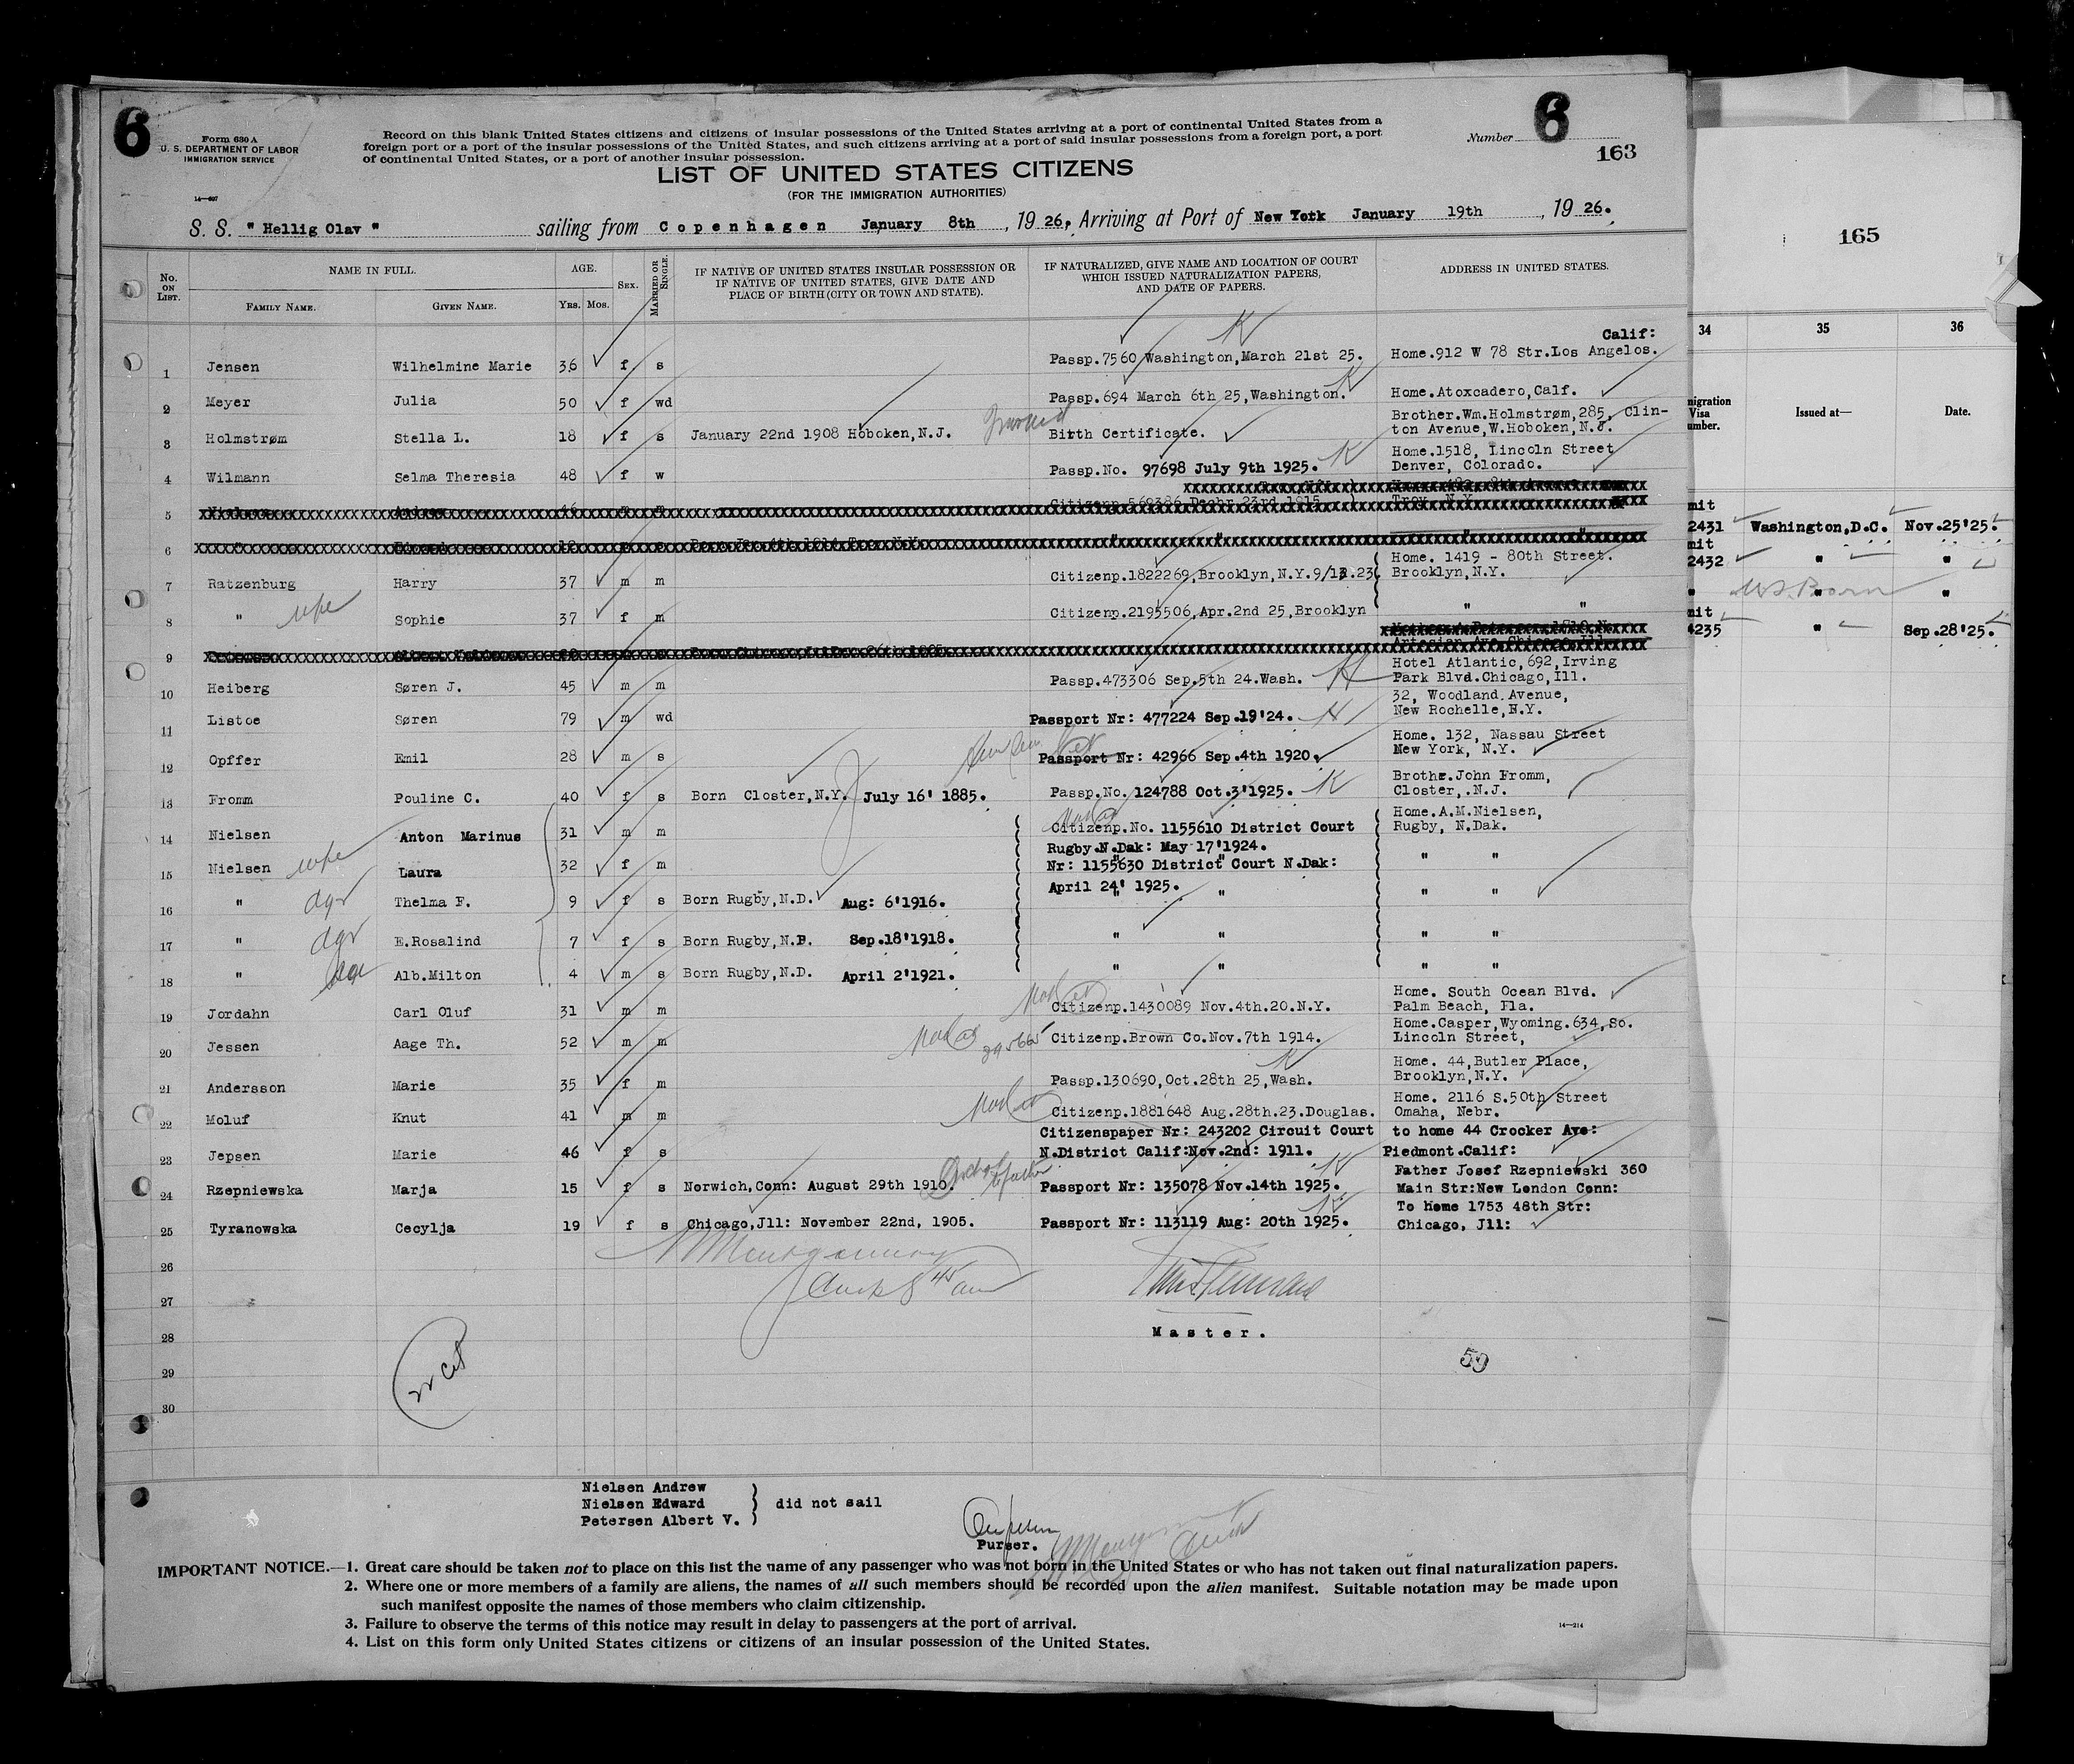 6
Form 630 A
U. S. DEPARTMENT OF LABOR
IMMIGRATION SERVICE
14—697
Record on this blank United States citizens and citizens of insular possessions of the United States arriving at a port of continental United States from a
foreign port or a port of the insular possessions of the United States, and such citizens arriving at a port of said insular possessions from a foreign port, a port
of continental United States, or a port of another insular possession.
Number 6
163
LIST OF UNITED STATES CITIZENS
(FOR THE IMMIGRATION AUTHORITIES)
S. S. " Hellig Olav " sailing from Copenhagen January 8th, 1926, Arriving at Port of New York January 19th, 1926.
No. ON LIST. NAME IN FULL. FAMILY NAME. GIVEN NAME. AGE. YRS. MOS. SEX. MARRIED OR SINGLE.
IF NATIVE OF UNITED STATES INSULAR POSSESSION OR
IF NATIVE OF UNITED STATES, GIVE DATE AND
PLACE OF BIRTH (CITY OR TOWN AND STATE).
IF NATURALIZED, GIVE NAME AND LOCATION OF COURT
WHICH ISSUED NATURALIZATION PAPERS,
AND DATE OF PAPERS.
ADDRESS IN UNITED STATES.
Calif:
1 Jensen Wilhelmine Marie 36 f s Passp.7560 Washington,March 21st 25. K Home.912 W 78 Str.Los Angelos.
2 Meyer Julia 50 f wd Passp.694 March 6th 25,Washington. K Home.Atoxcadero,Calf.
3 Holmstrøm Stella L. 18 f s January 22nd 1908 Hoboken,N.J. Birth Certificate. Brother.Wm.Holmstrøm,285, Clin-
ton Avenue,W.Hoboken,N.J.
4 Wilmann Selma Theresia 48 f w Passp.No. 97698 July 9th 1925. K Home.1518, Lincoln Street
Denver, Colorado.
5 Citizenp.569386 Decbr.23rd 1915 Troy, N.Y.
6
7 Ratzenburg Harry 37 m m Citizenp.1822269,Brooklyn,N.Y.9/12.23 Home. 1419 - 80th Street.
Brooklyn,N.Y.
8 " wife Sophie 37 f m Citizenp.2195506,Apr.2nd 25,Brooklyn " "
9
10 Heiberg Søren J. 45 m m Passp.473306 Sep.5th 24.Wash. Hotel Atlantic,692,Irving
Park Blvd.Chicago,Ill.
11 Listoe Søren 79 m wd Passport Nr: 477224 Sep.19'24. 32, Woodland.Avenue,
New Rochelle,N.Y.
12 Opffer Emil 28 m s Passport Nr: 42966 Sep.4th 1920. Home. 132, Nassau Street
New York, N.Y.
13 Fromm Pouline C. 40 f s Born Closter,N.Y. July 16' 1885. Passp.No. 124788 Oct.3'1925. K Brothr.John Fromm,
Closter,.N.J.
14 Nielsen Anton Marinus 31 m m Citizenp.No. 1155610 District Court
Rugby.N.Dak: May 17'1924. Home.A.M.Nielsen,
Rugby, N.Dak.
15 Nielsen wife Laura 32 f m Nr: 1155630 District Court N.Dak:
April 24' 1925. " "
16 " dgr Thelma F. 9 f s Born Rugby,N.D. Aug: 6'1916. " " " "
17 " dgr E.Rosalind 7 f s Born Rugby,N.D. Sep.18'1918. " " " "
18 " Alb.Milton 4 m s Born Rugby,N.D. April 2'1921. " " " "
19 Jordahn Carl Oluf 31 m m Citizenp.1430089 Nov.4th.20.N.Y. Home. South Ocean Blvd.
Palm Beach, Fla.
20 Jessen Aage Th. 52 m m Citizenp.Brown Co.Nov.7th 1914. Home.Casper,Wyoming.634,So.
Lincoln Street,
21 Andersson Marie 35 f m Passp.130690,Oct.28th 25,Wash. K Home. 44,Butler Place,
Brooklyn,N.Y.
22 Moluf Knut 41 m m Citizenp.1881648 Aug.28th.23.Douglas. Home. 2116 S.50th Street
Omaha, Nebr.
23 Jepsen Marie 46 f s Citizenspaper Nr: 243202 Circuit Court
N.District Calif:Nov.2nd: 1911. to home 44 Crocker Ave:
Piedmont.Calif:
24 Rzepniewska Marja 15 f s Norwich,Conn: August 29th 1910. Passport Nr: 135078 Nov.14th 1925. K Father Josef Rzepniewski 360
Main Str:New London Conn:
25 Tyranowska Cecylja 19 f s Chicago,Jll: November 22nd, 1905. Passport Nr: 113119 Aug: 20th 1925. K To home 1753 48th Str:
Chicago, Jll:
26
27
28
29
30
Master.
59
Nielsen Andrew
Nielsen Edward
Petersen Albert V.
did not sail
Purser.
IMPORTANT NOTICE.—1. Great care should be taken not to place on this list the name of any passenger who was not born in the United States or who has not taken out final naturalization papers.
2. Where one or more members of a family are aliens, the names of all such members should be recorded upon the alien manifest. Suitable notation may be made upon
such manifest opposite the names of those members who claim citizenship.
3. Failure to observe the terms of this notice may result in delay to passengers at the port of arrival.
4. List on this form only United States citizens or citizens of an insular possession of the United States.
14—214
165
34 35 36
migration
Visa
umber.
Issued at—
Date.
mit
2431 Washington,D.C. Nov.25'25.
mit
2432 " "
" U.S. Born " "
mit
4235 " Sep.28'25.